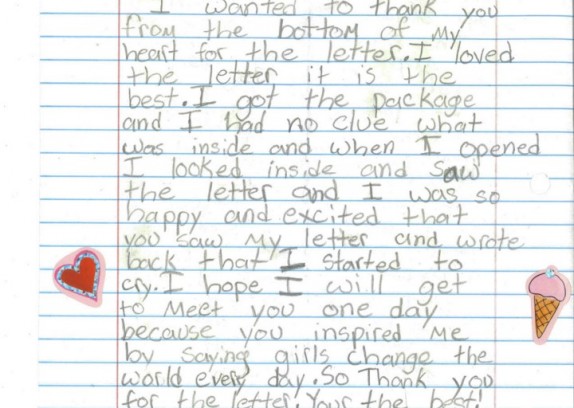 I wanted to thank you
from the bottom of My
heart for the letter.I loved
the letter it is the
best.I got the package
and I had no clue what
was inside and when I opened
I looked inside and saw
the letter and I was so
happy and excited that
you saw My letter and wrote
back that I started to
cry.I hope I will get
to Meet you one day
because you inspired Me
by saying girls change the
world every day.So Thank you
for the letter.Your the best!